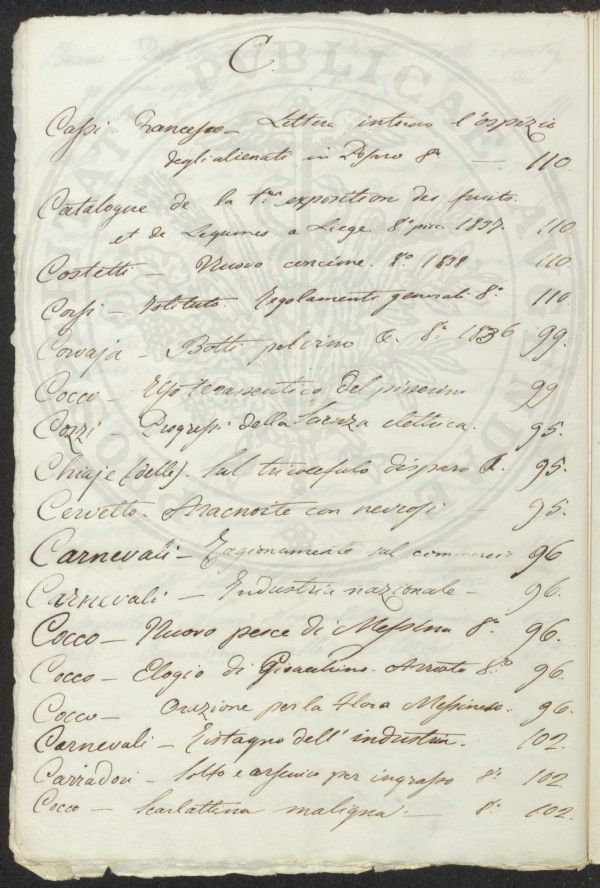 C.
Cassi Francesco – Lettera intorno l'ospizio
degli alienati in Pesaro 8° — 110.
Catalogue de la 1.ere exposition des fruits
et de Legumes a Liege. 8° 1837. 110.
Costetti – Nuovo concime. 8.° 1838 110.
Corsi – Istituto Regolamenti generali 8.° 110.
Corvaja – Botti pel vino &. 8.° 1836 99.
Cocco – terapeutico del 99
Cozzi – Progressi della Scienza elettrica. 95.
Chiaje (delle). Sul tricocefalo dispero &. 95.
Cervetto. Aracnoite con nevrosi – 95.
Carnevali – Ragionamento sul commercio 96
Carnevali – Industria nazionale – 96.
Cocco – Nuovo pesce di Messina 8.° 96.
Cocco – Elogio di Gioacchino Arrosto 8.° 96.
Cocco – Orazione per la Flora Messinese. 96.
Carnevali – Ristagno dell' industria. 102.
Carradori – Solfo e arsenico per ingrasso 8.° 102.
Cocco – Scarlattina maligna — 8.° 102.